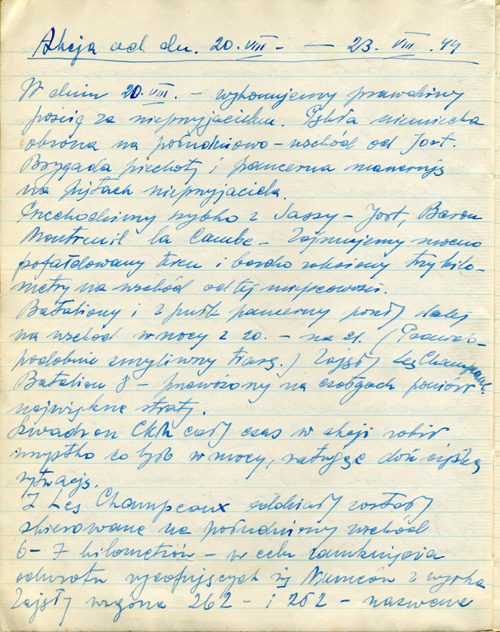 Akcja od dn. 20.VIII. — 23. VIII. 44
W dniu 20.VIII. – wykonujemy prawdziwy
pościg za nieprzyjacielem. Była niemiecka
obrona na południowo-wschód od Jort.
Brygada piechoty i pancerna manewrują
na piętach nieprzyjaciela.
Przechodzimy szybko z Sassy – Jort, Baron
Montreuil la Cambe – Zajmujemy mocno
pofałdowany teren i bardzo zalesiony trzy kilo-
metry na wschód od tej miejscowości.
Bataliony i 2 pułk pancerny poszły dalej
na wschód w nocy z 20. – na 21. (Prawdo-
podobnie zmyliwszy trasę.) Zajęły Les Champeaux.
Batalion 8 – prawożony na czołgach poniósł
największe straty.
Szwadron CKM cały czas w akcji robił
wszystko co było w mocy, ratując dość ciężką
sytuację.
Z Les Champeaux oddziały zostały
skierowane na południowy wschód
6 – 7 kilometrów – w celu zamknięcia
odwrotu wycofujących się Niemców z worka
Zajęły wzgórza 262 – i 252 – nazwane